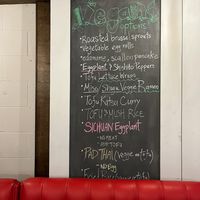 Vegan
options
• Roasted brussel sprouts
• Vegetable egg rolls
• edamame, scallion pancake
• Eggplant & Shishito Peppers
• Tofu Lettuce Wraps
• Miso/Shoyu Veggie Ramen
• Tofu Katsu Curry
• TOFU + MUSH RICE
• SICHUAN Eggplant
- NO MEAT
TOFU
• PAD THAI (veggie or tofu)
- NO Egg
Fried Rice